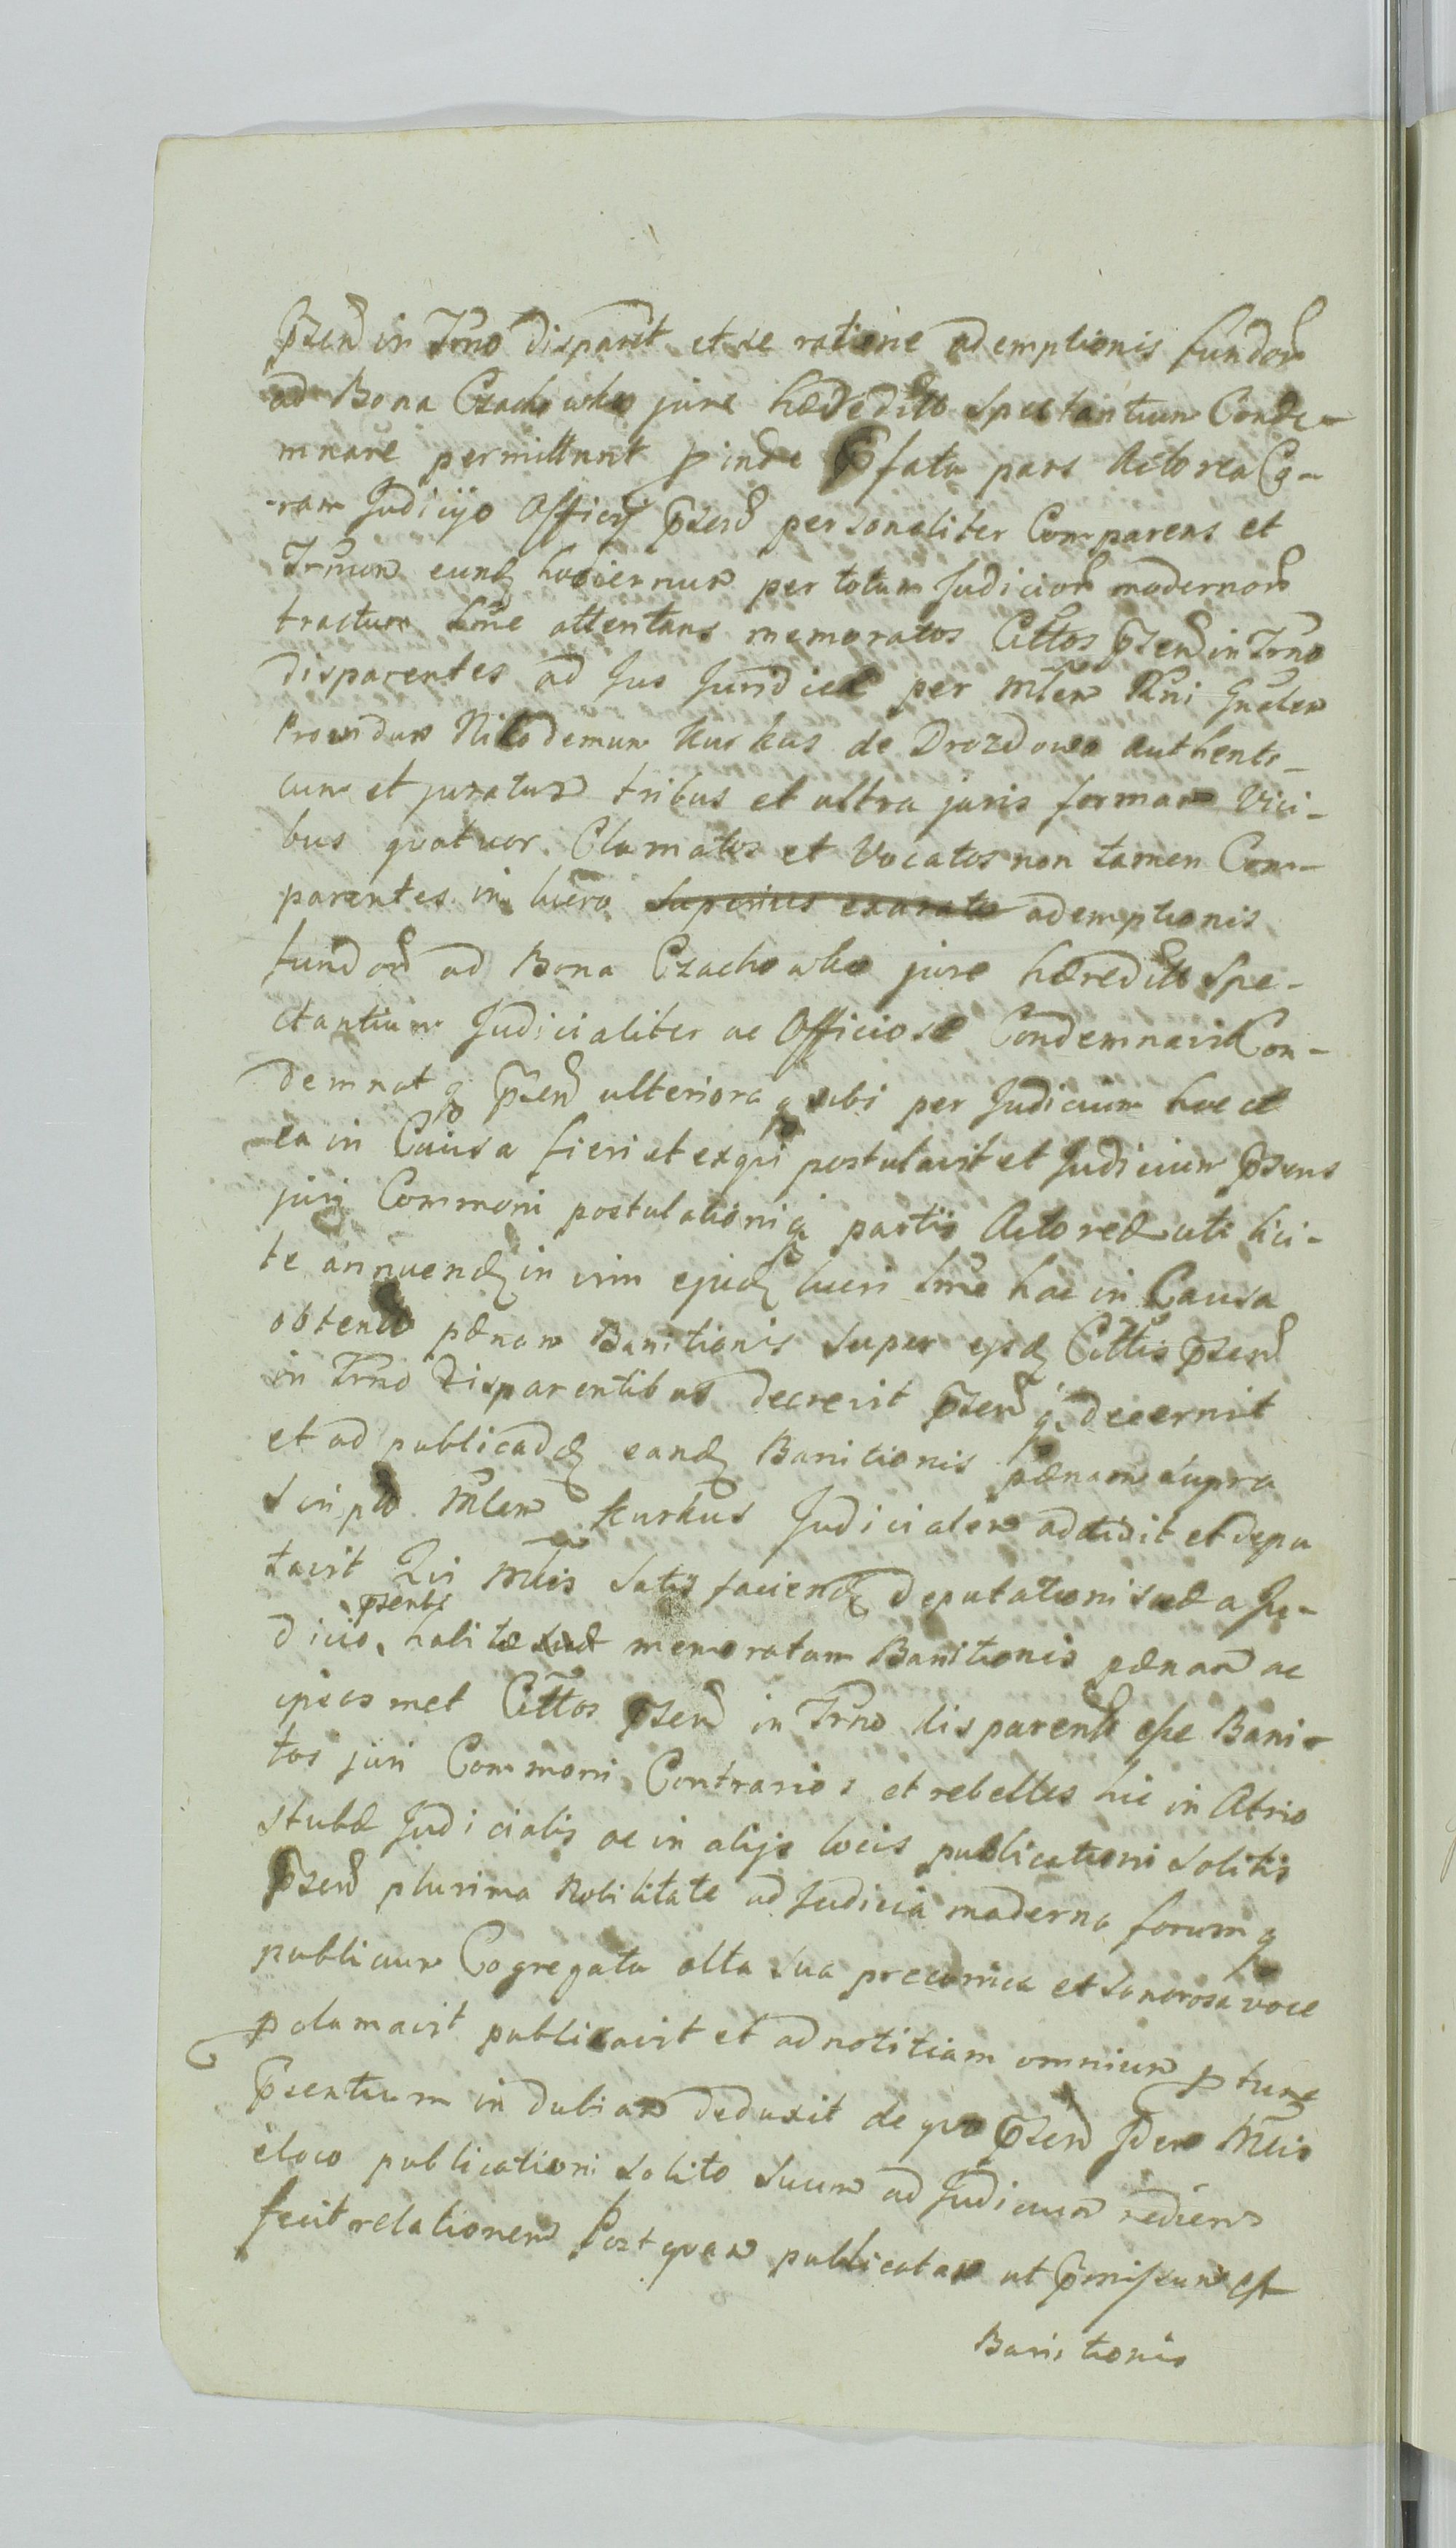 Pzend in Trno disparet et se ratione ademptionis fundor
ad Bona Czachowko jure hæreditto Spectantium Conde-
mnare permittunt pinde Pfata pars Actorea Co-
ram Judicijo Officij pzend personaliter Comparens et
Trmum eund hodiernum per totum Judicior modernor
tractum ttme attentans memoratos Cittos pzend in Trno
disparentes ad Jus Juridice per Mlem Rni Gnalem
Providum Nikodemum Kurkus de Drozdowo authenti-
cum et juratum tribus et ultra juris formam Vici-
bus quatuor Clamatos et Vocatos non tamen Com-
parentes in lucro superius exarato ademptionis
fundor ad Bona Czachowko jure hæreditto Spe-
ctantium Judicialiter ac Officiose Condemnavit Con-
demnatq pzend ulterioraq sibi per Judicium hoc et
ea in Causa fieri et exqui postulavit et Judicium pzens
juri Communi postulationiq partis Actoreæ uti lici-
te annuend in vim ejusd lucri ttme hac in Causa
obtento pænam Banitionis super ejsd Cittis pzend
in Trno disparentibus decrevit pzendq decernit
et ad publicand eand Banitionis pænam supra
Scripto Mlem Kurkus Judicialem addidit et depu
tavit Qui Mlis Satisfaciend deputationi suæ a Ju-
dicio pzenti habitæ suæ memoratam Banitionis pænam ac
ipsosmet Cittos pzend in Trno disparents esse Bani-
tos juri Communi Contrarios et rebelles hic in Atrio
stubæ Judicialis ac in alijs locis publicationi solitis
pzend plurima Nobilitate ad Judicia moderna forumq
publicum Cogregata alta sua preconica et sonorosa voce
pclamavit publicavit et ad notitiam omnium ptunc
Psentium indubiam deduxit de quo pzend idem Mlis
eloco publicationi solito suum ad Judicium rediens
fecit relationem Postquam publicatam ut pmissum est
Banitionis